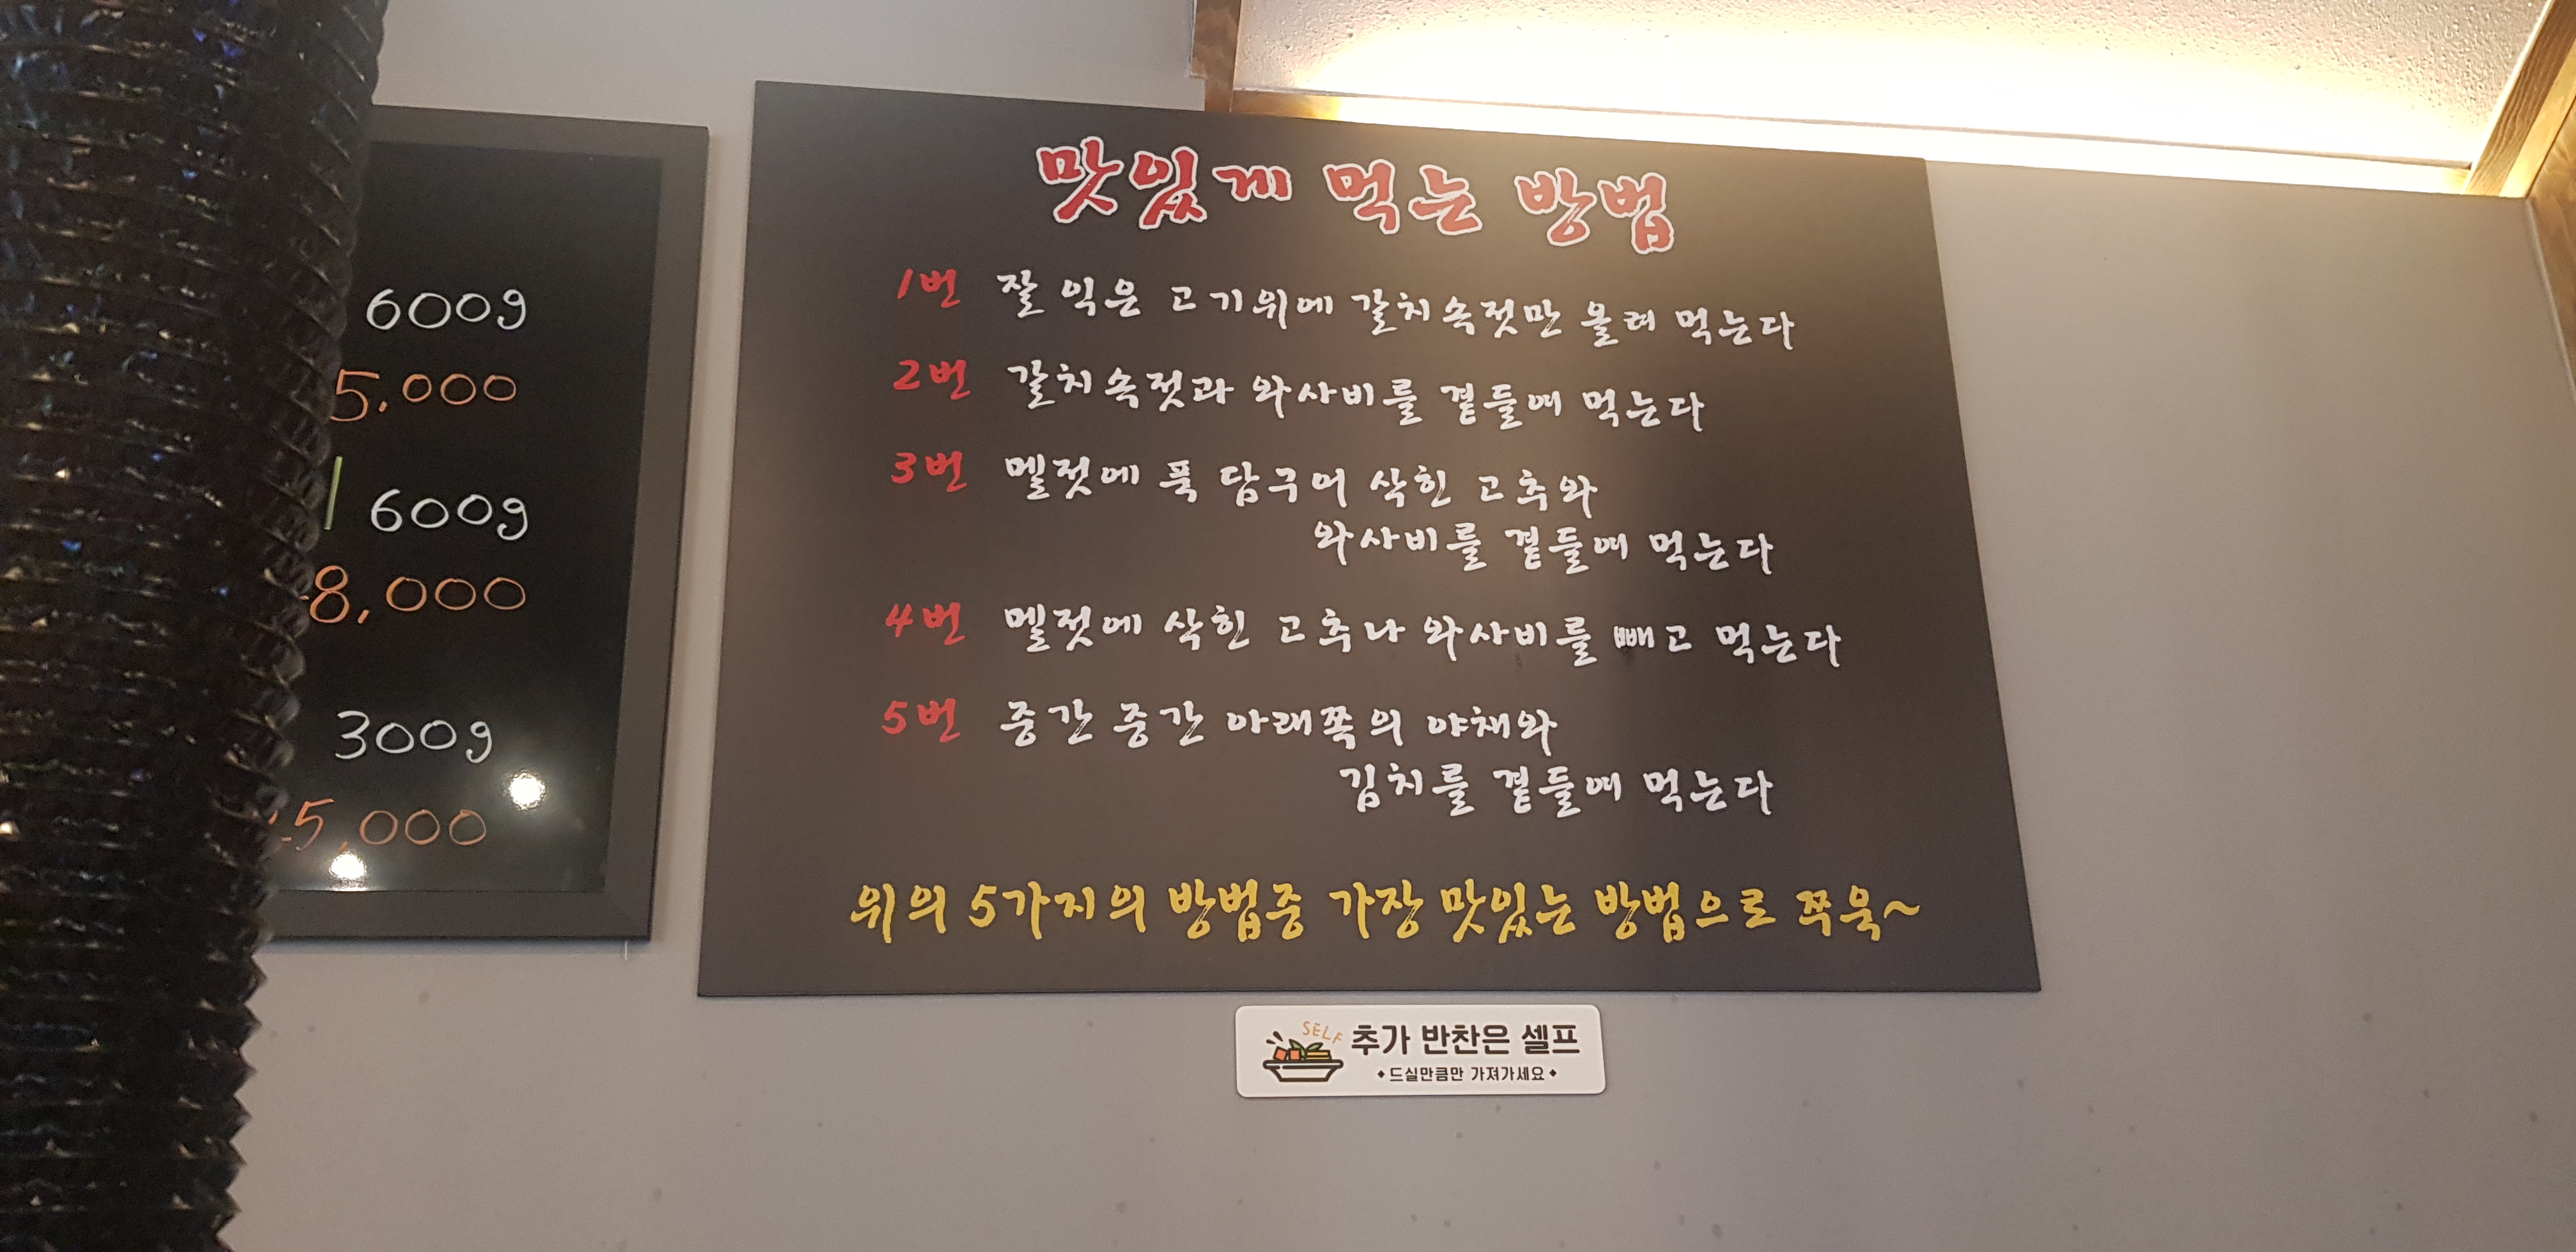 600g
5,000
600g
8,000
300g
5,000
맛있게 먹는 방법
1번 잘 익은 고기위에 갈치속젓만 올려 먹는다
2번 갈치속젓과 와사비를 곁들여 먹는다
3번 멜젓에 푹 담구어 삭힌 고추와
와사비를 곁들여 먹는다
4번 멜젓에 삭힌 고추나 와사비를 빼고 먹는다
5번 중간 중간 아래쪽의 야채와
김치를 곁들여 먹는다
위의 5가지의 방법중 가장 맛있는 방법으로 쭈욱~
SELF
추가 반찬은 셀프
◆드실만큼만 가져가세요◆